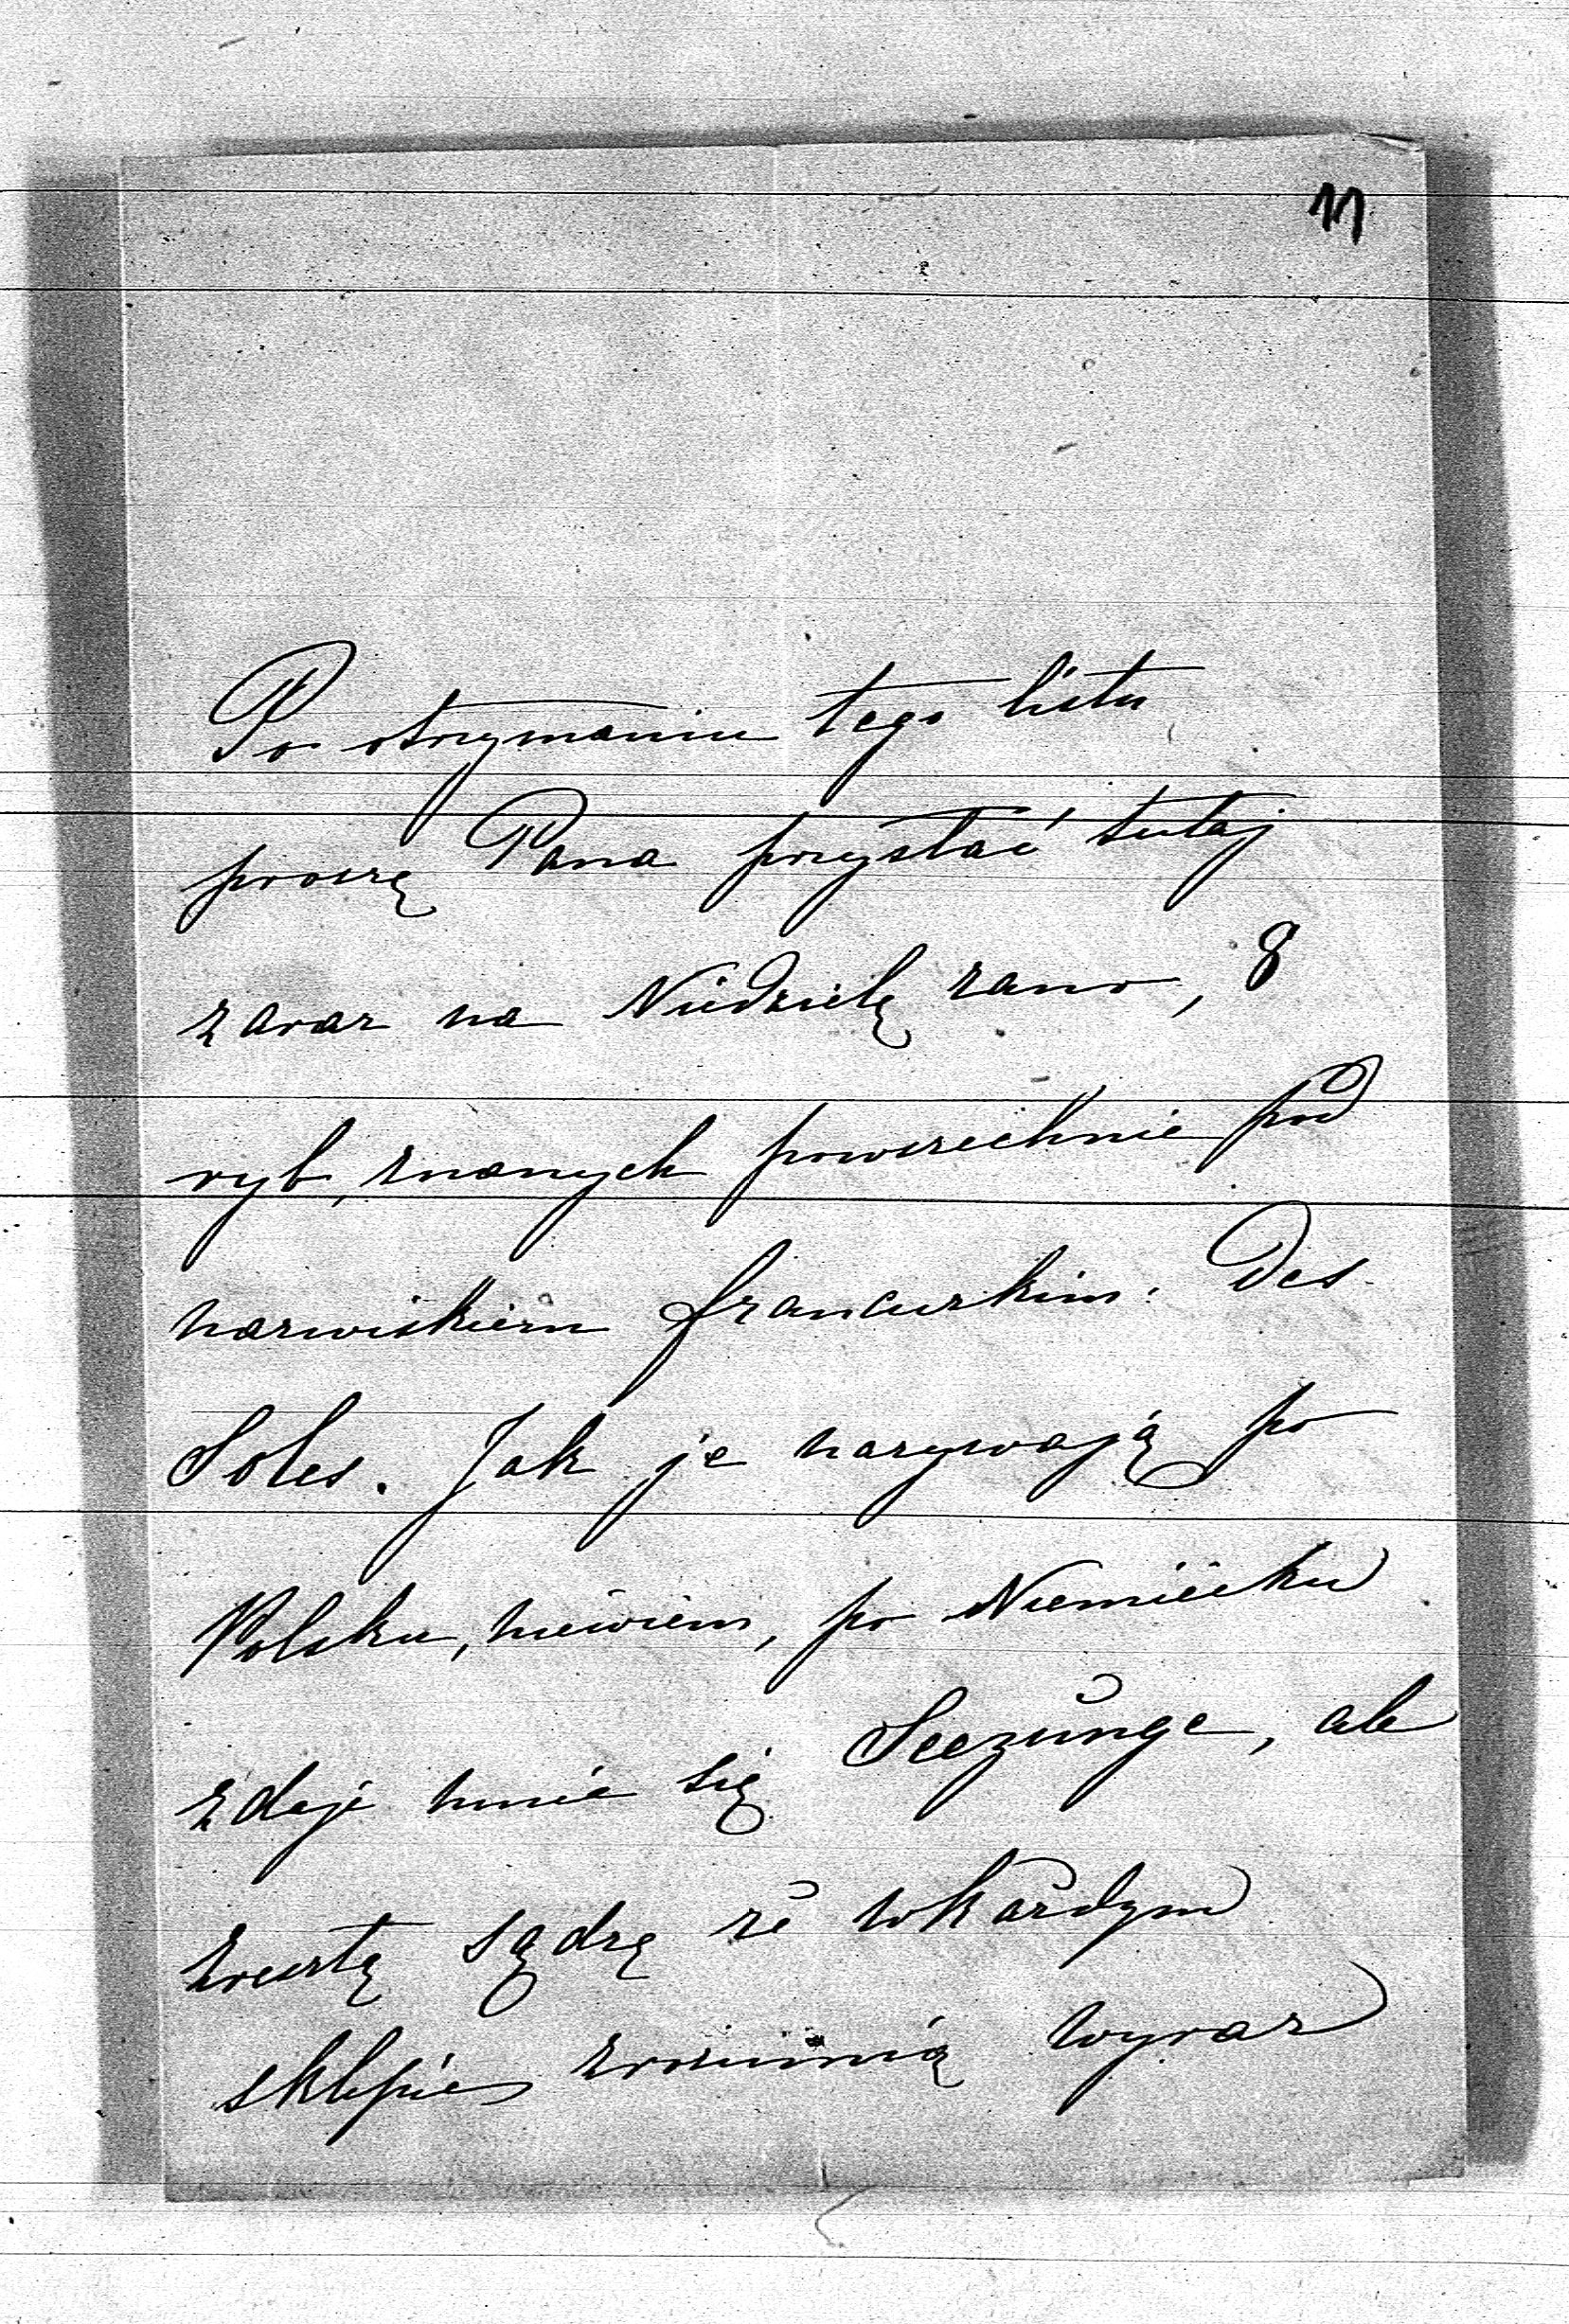 11
Po otrzymaniu tego listu
proszę Pana przysłać tutaj
zaraz na Niedzielę rano, 8
ryb, znanych powszechnie pod
nazwiskiem francuzkim: Des
Soles. Jak je nazywają po
Polsku, niewiem, po Niemiecku
zdaje mnie się Seezŭnge, ale
zresztą sądzę że wkażdym
sklepie zrozumią wyraz